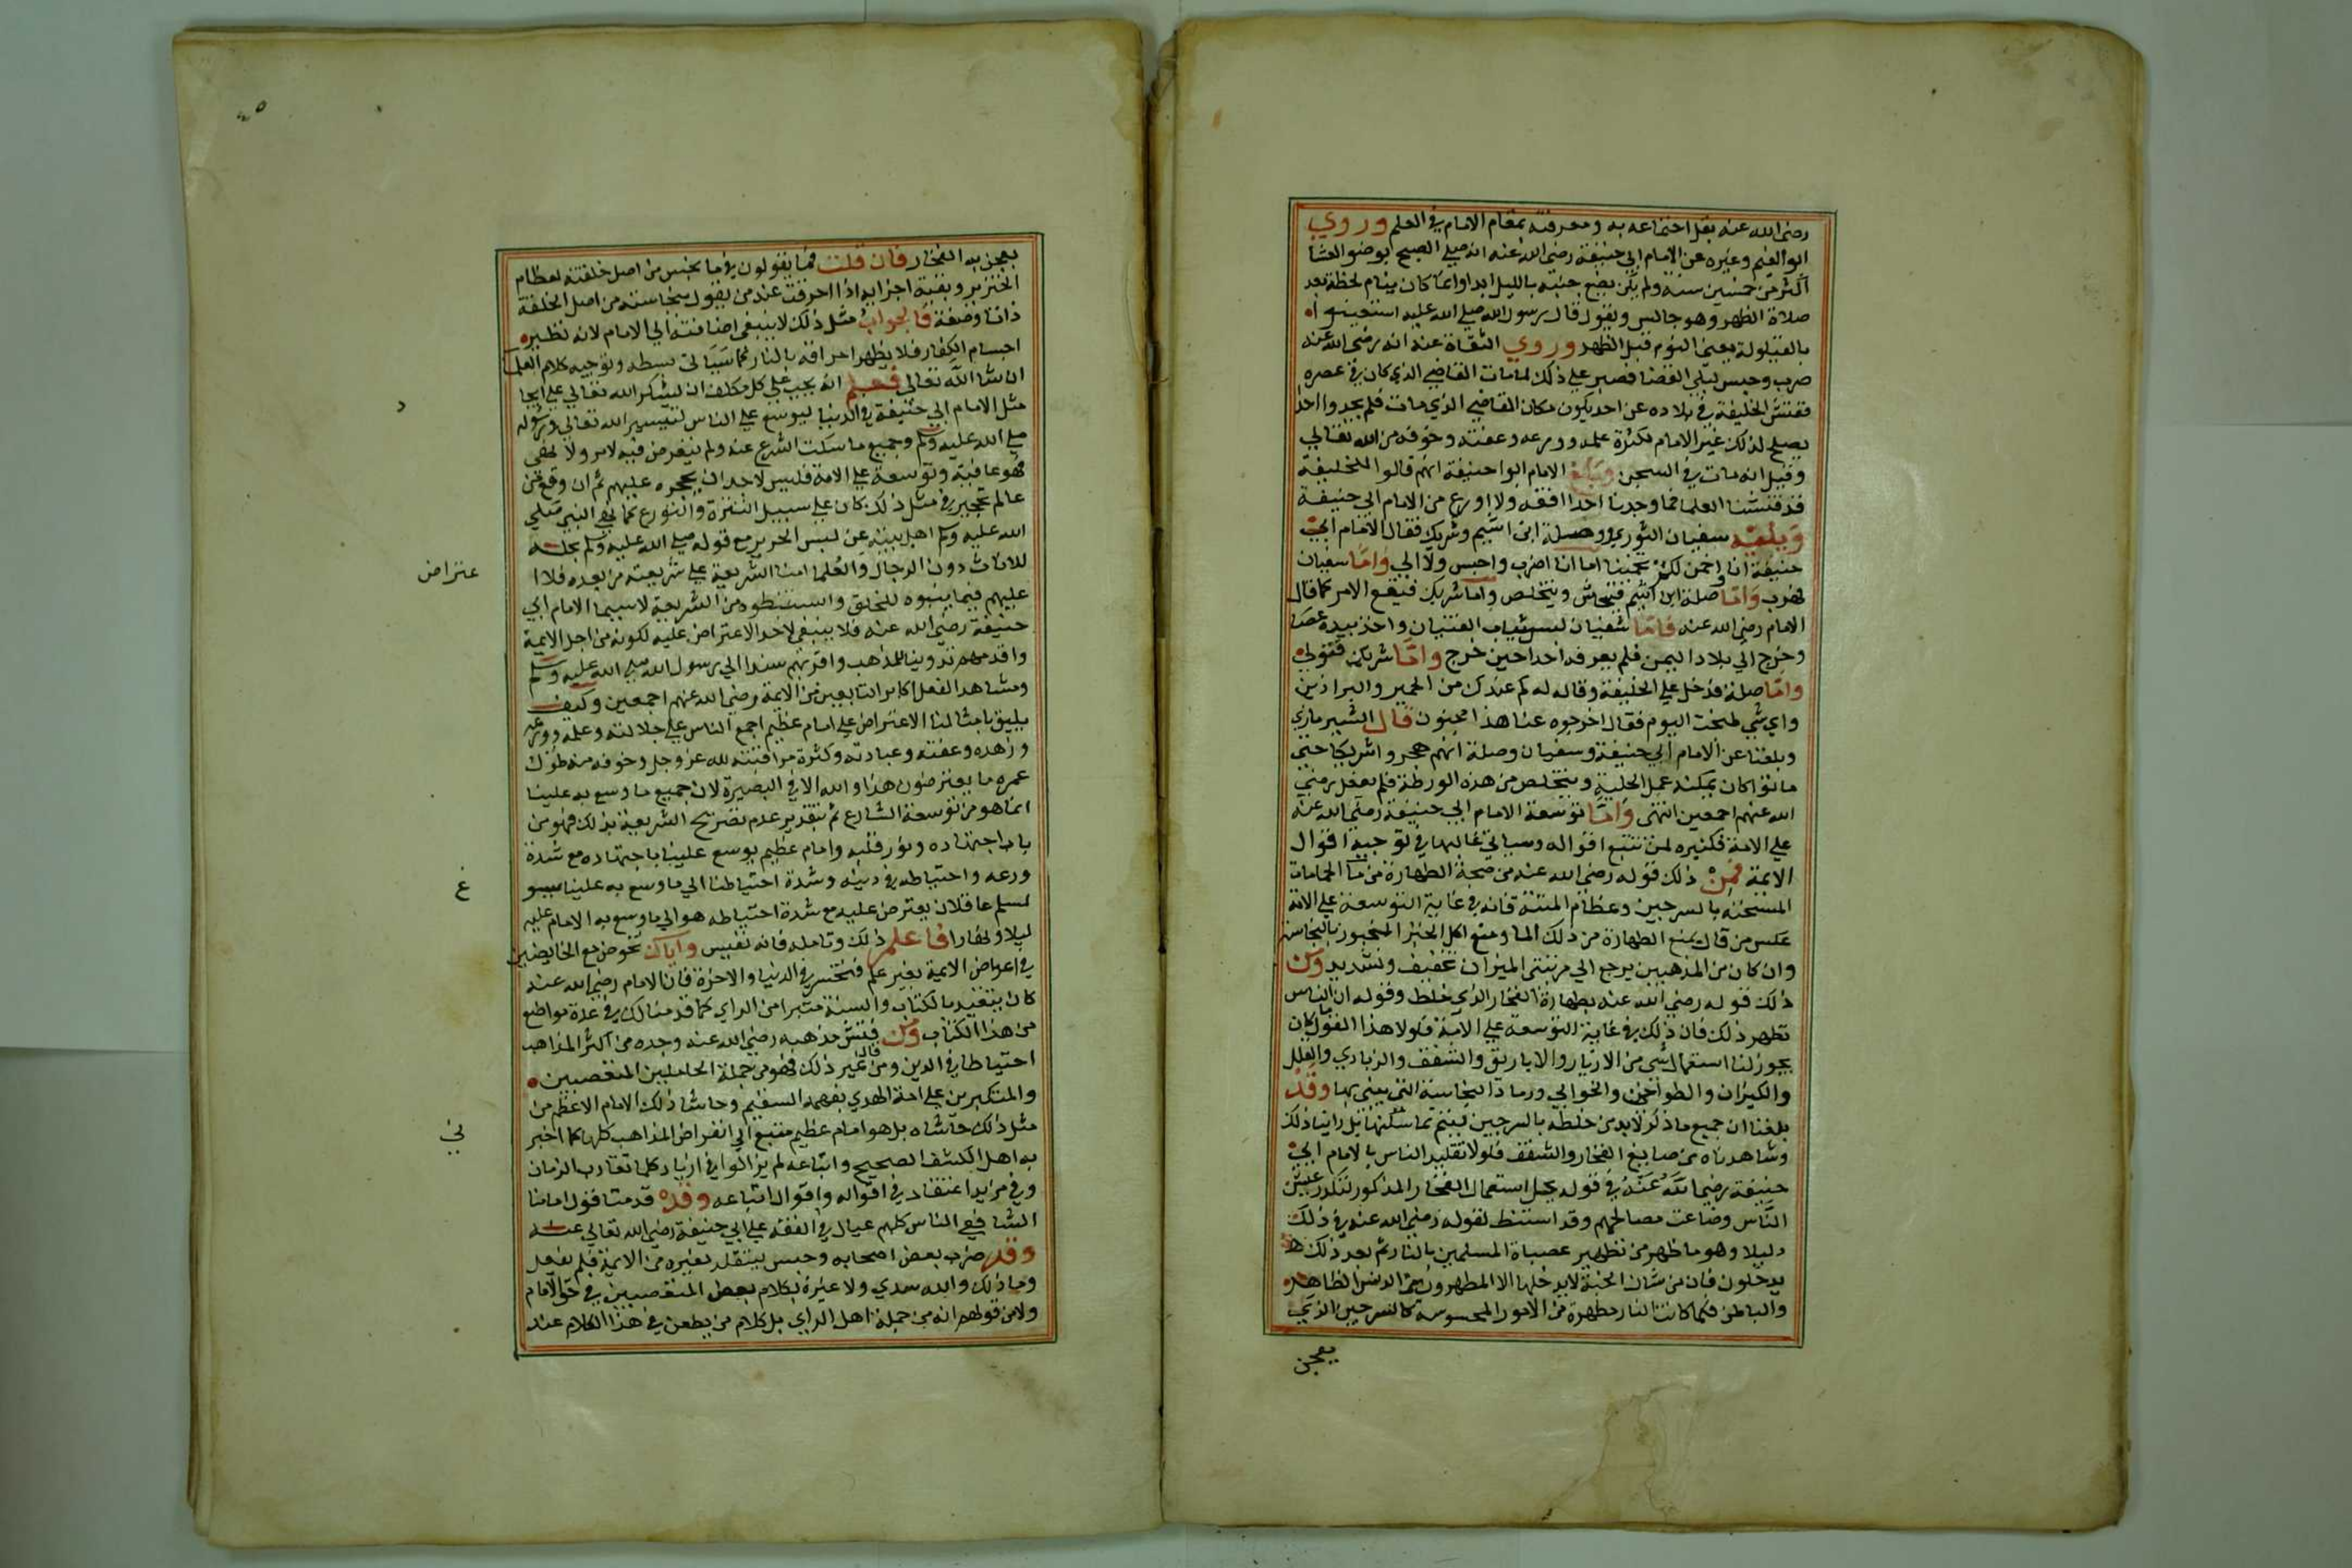 رضي الله عنه بقل اجتماعه به ومعرفته بمقام الامام في العلم وروي
ابوالغيم وغيره عن الامام ابي حنيفة رضي الله عنه انه صلي الصبح بوضوالعشا
اكثر من خمسين سنه ولم يكن يضع جنبه بالليل ابدا وانما كان ينام لحظة بعد
صلاة الظهر وهو جالس ويقول قال رسول الله صلي الله عليه استعينوا
بالقيلولة يعني النوم قبل الظهر وروي الثقاة عنه انه رضي الله عنه
ضرب وحبس ليلي القضا فصبر علي ذلك لما مات القاضي الذي كان في عصره
ففتش الخليفة في بلاده عن احد يكون مكان القاضي الذي مات فلم يجدوا احدا
يصلح لذلك غير الامام لكثرة علمه وورعه وعفته وخوفه من الله تعالي
وقيل انه مات في السجن وبلغ الامام ابوا حنيفة انهم قالوا للخليفة
قد فتشنا العلما فما وجدنا احدا افقه ولا اورع من الامام ابي حنيفة
ويليه سفيان الثوري وصلة ابن اشيم وشريك فقال الامام ابي
حنيفة انا اخمن لكم تخمينا اما انا اضرب واحبس ولا الي واما سفيان
فهرب واما صلة ابن اشيم فيتحاش ويتخلص واما شريك فيقع الامر كما قال
الامام رضي الله عنه فاما سفيان لبس ثياب الفتيان واخذ بيده عصا
وخرج الي بلاد اليمن فلم يعرفه احد احين خرج واما شريك فتولي
واما صلة فدخل علي الخليفة وقال له كم عندك من الحمير والبراذين
واي شي طبخت اليوم فقال اخرجوه عنا هذا مجنون قال الشيبرمازي
وبلغنا عن الامام ابي حنيفة وسفيان وصلة انهم هجروا شريكا حتي
ماتوا كان يمكنه عمل الحلية ويتخلص من هذه الورطة فلم يفعل رضي
الله عنهم اجمعين انتهي واما توسعة الامام ابي حنيفة رضي الله عنه
علي الامة فكثيره لمن تتبع اقواله وسياتي غالبها في توجيه اقوال
الايمة فمن ذلك قوله رضي الله عنه من صحة الطهارة من ما الحمامات
المسخنه بالسرجين وعظام الميتة فانه في غاية التوسعة علي الامة
عكس من قال يمنع الطهارة من ذلك الما ومنع اكل الخبز المخبوز بالنجاسة
وان كان من المذهبين يرجع الي مرتبتي الميزان تخفيف وتشديد ومن
ذلك قوله رضي الله عنه بطهارة الفخار الذي خلط وقوله ان الناس
تطهر ذلك فان ذلك في غاية التوسعة علي الامة فلولا هذا القول كان
يجوز لنا استعمال شي من الازيار والاباريق والشقف والزبادي والقلل
والكيزان والطواجين والخوابي ورماد النجاسة التي يبني بها وقد
بلغنا ان جميع ما ذكر لابد من خلطه بالسرجين ليتم تماسكها بل راينا ذلك
وشاهدناه من صانع الفخار والشقف فلولا تقليد الناس بالامام ابي
حنيفة رضي الله عنه في قوله بحل استعمال الفخار المذكور لتكدر عيش
الناس وضاعت مصالحهم وقد استنبط لقوله رضي الله عنه في ذلك
دليلا وهو ما ظهر من تطهير عصاة المسلمين بالنار ثم بعد ذلك
يدخلون فان من شان الجنة لا يدخلها الا المطهرون من الدنس الظاهر
والباطن فكما كانت النار مطهرة من الامور المحسوسة كالسرجين الذي
يعجن
يعجن به الفخار فان قلت فما يقولون في ما نجس من اصل خلقته لعظام
الخنزير وبقية اجزايه اذا احرقت عند من يقول بنجاسته من اصل الخلقة
ذاتا وصفة فالجواب مثل ذلك لا ينبغي اضافته الي الامام لانه نظير
اجسام الكفار فلا يظهر احراقه بالنار كما سياتي بسطه وتوجيه كلام العلما
ان شا الله تعالي فعلم انه يجب علي كل مكلف ان يشكر الله تعالي علي ايجا
د
مثل الامام ابي حنيفة في الدنيا ليوسع علي الناس لتيسير الله تعالي ورسوله
صلي الله عليه وسلم وجميع ما سكت الشرع عنه ولم يتعرض فيه لامر ولا نهي
فهو عافية وتوسعة علي الامة فليس لاحد ان يحجره عليهم ثم ان وقع من
عالم تحجير في مثل ذلك كان علي سبيل التنزه والتورع كما نهي النبي صلي
الله عليه وسلم اهل بيته عن لبس الحرير مع قوله صلي الله عليه وسلم بحله
للاناث دون الرجال والعلما امنا الشريعة علي شريعته من بعده فلا ا
عتراض
عليهم فيما بينوه للخلق واستنبطوه من الشريعة لا سيما الامام ابي
حنيفة رضي الله عنه فلا ينبغي لاحد الاعتراض عليه لكونه من اجل الايمة
واقدمهم تدوينا للمذاهب واقربهم سندا الي رسول الله صلي الله عليه وسلم
ومشاهد الفعل اكابر التابعين من الايمة رضي الله عنهم اجمعين وكيف
يليق بامثالنا الاعتراض علي امام عظيم اجمع الناس علي جلالته وعلمه وورعه
وزهده وعفته وعبادته وكثرة مراقبته لله عز وجل وخوفه منه طول
عمره ما يعترضون هذا والله الا في البصيرة لان جميع ما وسع به علينا
انما هو من توسعة الشارع ثم بتقدير عدم تصريح الشريعة بذلك فهو من
باب اجتهاده ونور قلبه وامام عظيم يوسع علينا باجتهاده مع شدة
ورعه واحتياطه في دينه وشدة احتياطنا الي ما وسع به علينا سيو
غ
لمسلم عاقلان يعترض عليه مع شدة احتياطه هو الي ما وسع به الامام عليه
ليلا ونهارا فاعلم ذلك وتامله فانه نفيس واياك تخوض مع الخايضين
في اعراض الايمة بغير علم فتخسر في الدنيا والاخرة فان الامام رضي الله عنه
كان يتقيد بالكتاب والسنة متبرا من الراي كما قدمنا لك في عدة مواضع
من هذا الكتاب ومن فتش مذهبه رضي الله عنه وجده من اكثر المذاهب
احتياطا في الدين ومن قال غير ذلك فهو من جملة الجاهلين المتعصبين
والمنكرين علي ايمة الهدي بفهمه السقيم وحاشا ذلك الامام الاعظم من
مثل ذلك حاشاه بل هو امام عظيم متبع الي انقراض المذاهب كلها كما اخبر
ني
به اهل الكشف الصحيح واتباعه لم يزالوا في ازدياد كلما تقارب الزمان
وفي مزيد اعتقاد في اقواله واقوال اتباعه وقد قدمنا قول امامنا
الشافعي الناس كلهم عيال في الفقه علي ابي حنيفة رضي الله تعالي عنه
وقد ضرب بعض اصحابه وحبس ليتقلد بغيره من الايمة فلم يفعل
وما ذلك والله سدي ولا عبرة بكلام بعض المتعصبين في حق الامام
ولا من قولهم انه من جملة اهل الراي بل كلام من يطعن في هذا الكلام عند